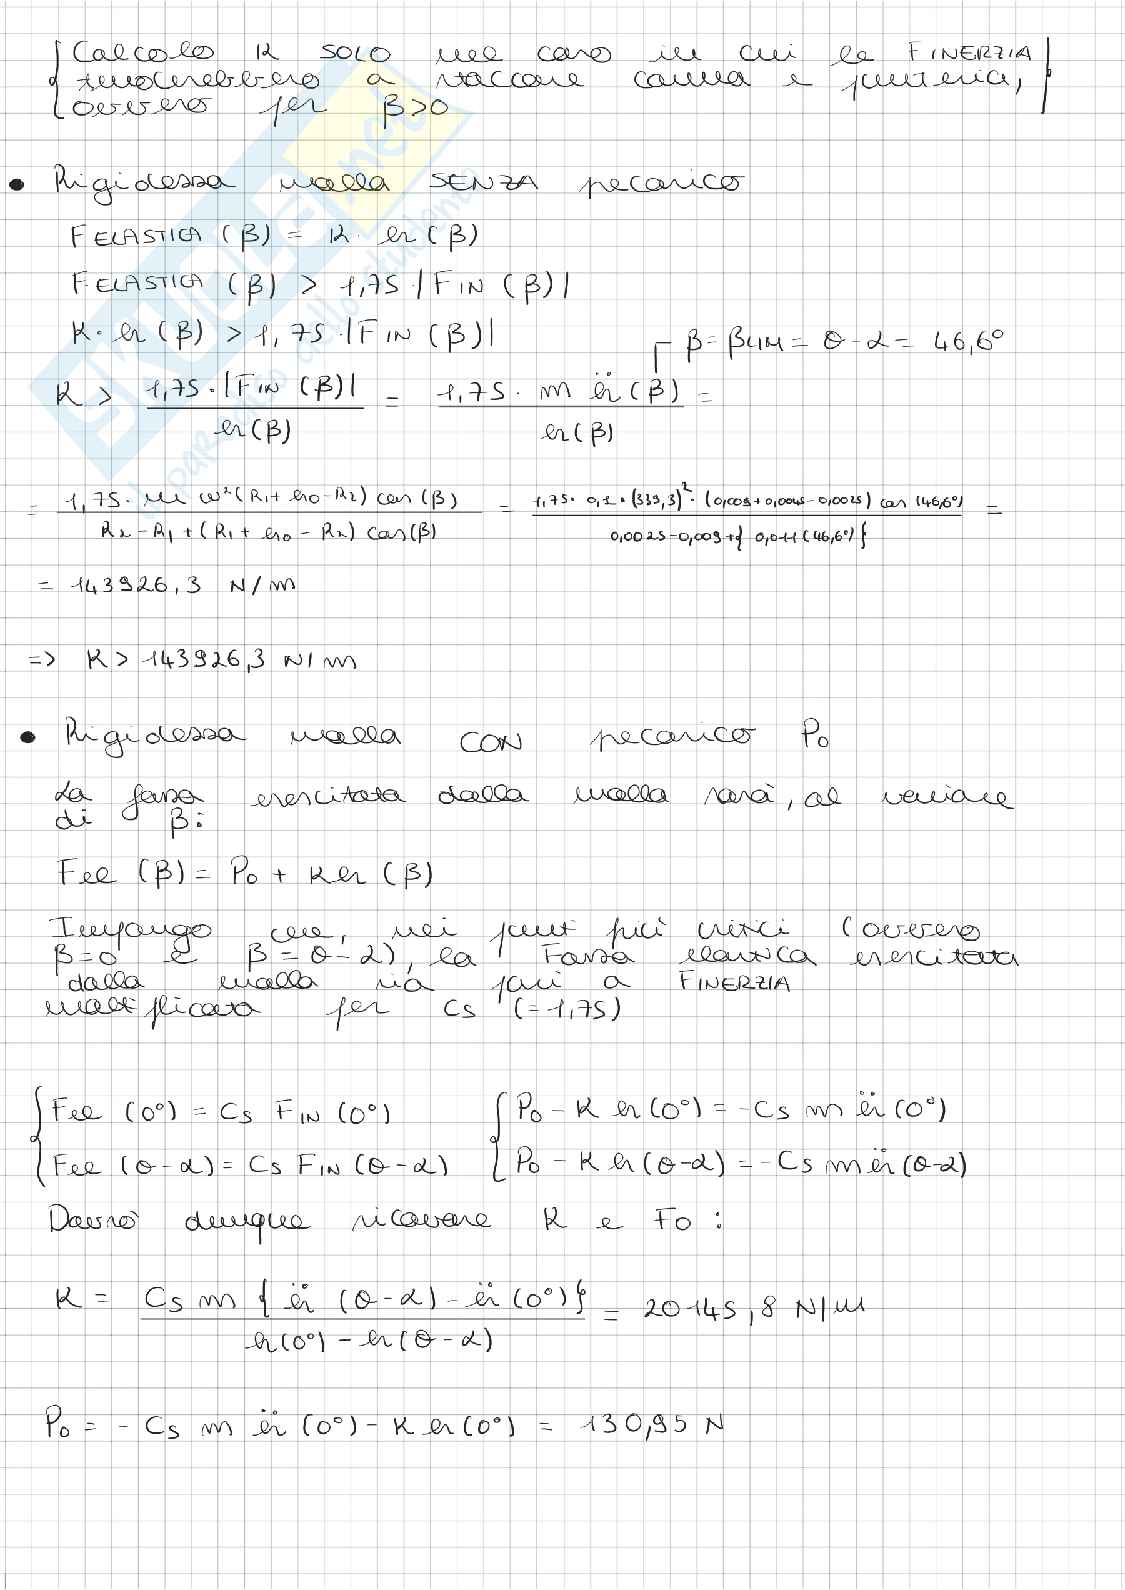 Calcolo K SOLO nel caso in cui le FINERZIA
tenderebbero a staccare camma e punteria,
ovvero per β>0
• Rigidezza molla SENZA precarico
FELASTICA (β) = K · h(β)
FELASTICA (β) > 1,75 · |FIN (β)|
K · h(β) > 1,75 · |FIN (β)|
β = βLIM = θ - α = 46,6°
K > 1,75 · |FIN (β)| / h(β) = 1,75 · m ḧ(β) / h(β) =
= 1,75 · m ω²(R1 + h0 - R2) cos(β) / R2 - R1 + (R1 + h0 - R2) cos(β) = 1,75 · 0,1 · (339,3)² · (0,009 + 0,0045 - 0,0025) cos (46,6°) / 0,0025 - 0,009 + { 0,011 (46,6°) } =
= 143926,3 N/m
=> K > 143926,3 N/m
• Rigidezza molla CON precarico P0
La forza esercitata dalla molla sarà, al variare
di β:
Fel (β) = P0 + K h (β)
Impongo che, nei punti più critici (ovvero
β=0 e β=θ-α), la Forza elastica esercitata
dalla molla sia pari a FINERZIA
moltiplicata per Cs (=1,75)
{ Fel (0°) = Cs FIN (0°) { P0 - K h(0°) = -Cs m ḧ(0°)
{ Fel (θ-α) = Cs FIN (θ-α) { P0 - K h(θ-α) = -Cs m ḧ(θ-α)
Dovrò dunque ricavare K e F0 :
K = Cs m { ḧ (θ-α) - ḧ (0°) } / h(0°) - h(θ-α) = 20145,8 N/m
P0 = - Cs m ḧ (0°) - K h(0°) = 130,95 N